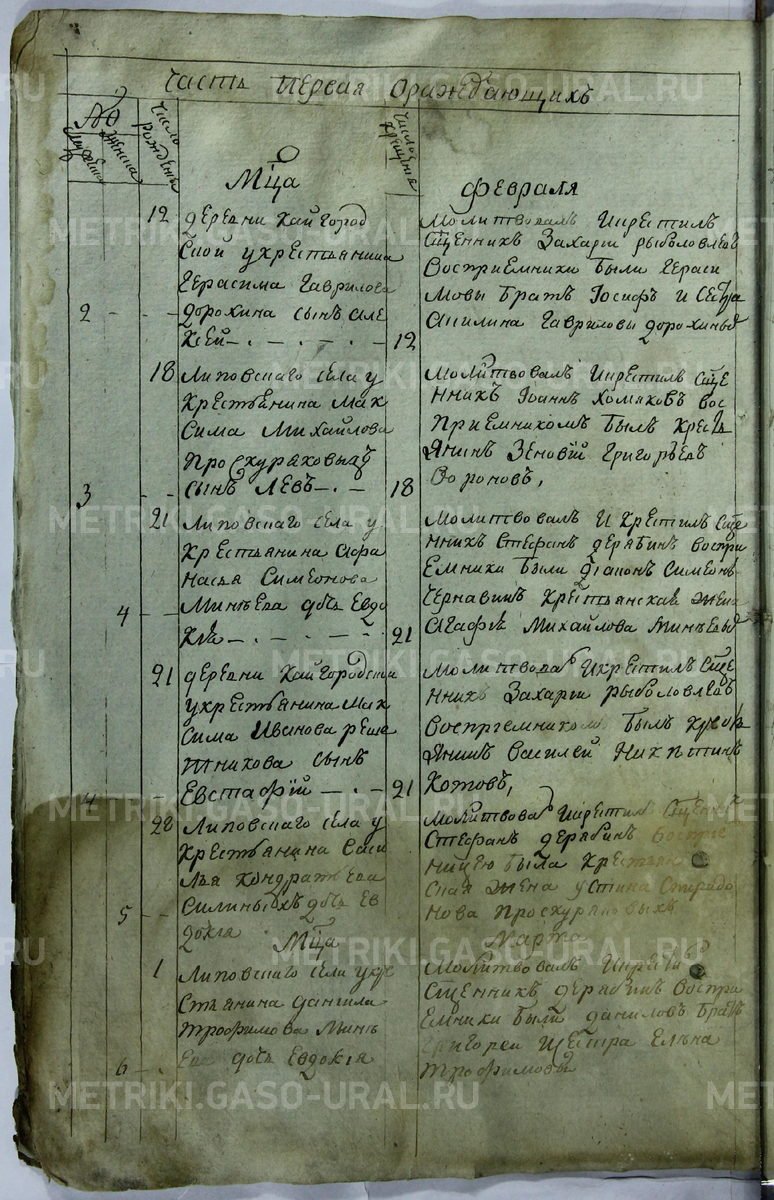 Часть Первая ораждающихъ
№
мужеска
женска
Число рожденія
Число крещенія
Мц̃а
Февраля
12
деревни Кайгород
ской у крестьянина
Герасима Гаврилова
2
Дорохина сынъ Але
ксей
12
Молитвовалъ и крестилъ
Сщенникъ Захарій Рыболовлевъ
Восприемники были Гераси
мовы братъ Иосифъ и сестра
Акилина Гавриловы Дорохины
18
Липовскаго села у
крестьянина Мак
сима Михайлова
Проскураковыхъ
3
сынъ Левъ
18
Молитвовалъ и крестилъ Сще
нникъ Иоаннъ Хомяковъ вос
приемникомъ былъ крестья
янинъ Зеновій Григорьевъ
Вороновъ,
21
Липовскаго села у
крестьянина Афа
насья Симеонова
4
Минѣева дочь Евдо
кѣя
21
Молитвовалъ и крестилъ Сще
нникъ Стефанъ Дерябинъ воспри
емники были Діаконъ Симеонъ
Чернавинъ крестьянская жена
Агафья Михайлова Минѣевы
21
деревни Кайгородской
у крестьянина Мак
сима Иванова Реше
тникова сынъ
4
Евстафій
21
Молитвовалъ и крестилъ Сще
нникъ Захарій Рыболовлевъ
Восприемникомъ былъ крест
янинъ Василей Никитинъ
Котовъ,
28
Липовскаго села у
крестьянина Васи
лья Кондратьева
5
Силиныхъ дочь Ев
докія
Молитвовалъ и крестилъ Сщенни
Стефанъ Дерябинъ воспріе
ницею была крестьян
ская жена Устина Спиридо
нова Проскураковыхъ
Мц̃а
Марта
1
Липовскаго села у кре
стьянина Даніила
Трофимова Минѣ
6
ева дочь Евдокія
Молитвовалъ и крестилъ
Сщенникъ Дерябинъ воспри
емники были Даниловъ братъ
Григорей и сестра Елена
Трофимовы
METRIKI.GASO-URAL.RU